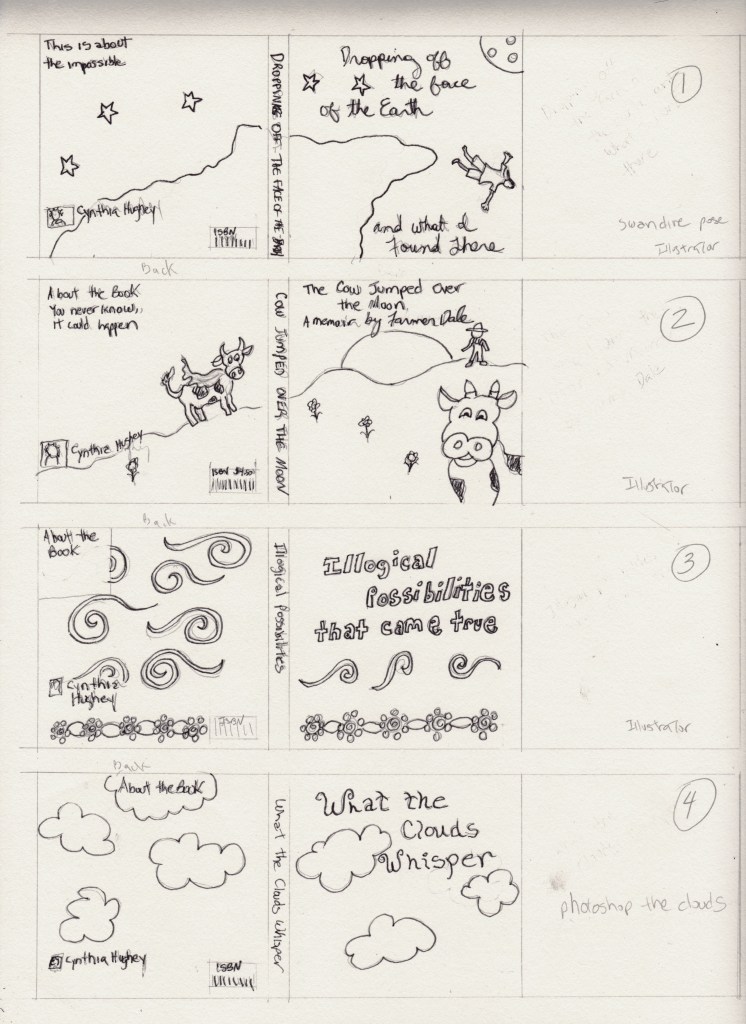 This is about
the impossible
Cynthia Hughey
ISBN
DROPPING OFF THE FACE OF THE
Dropping off
the face
of the Earth
and what I
Found There
1
swandive pose
Illustrator
Back
About the Book
You never know,
it could happen
Cynthia Hughey
ISBN
COW JUMPED OVER THE MOON
The Cow Jumped Over
the Moon,
A memoir by Farmer Dale
2
Dale
Illustrator
Back
About the
Book
Cynthia
Hughey
ISBN
Illogical Possibilities
Illogical
Possibilities
that came true
3
Illustrator
Back
About the Book
Cynthia Hughey
ISBN
What the Clouds Whisper
What the
Clouds
Whisper
4
photoshop the clouds